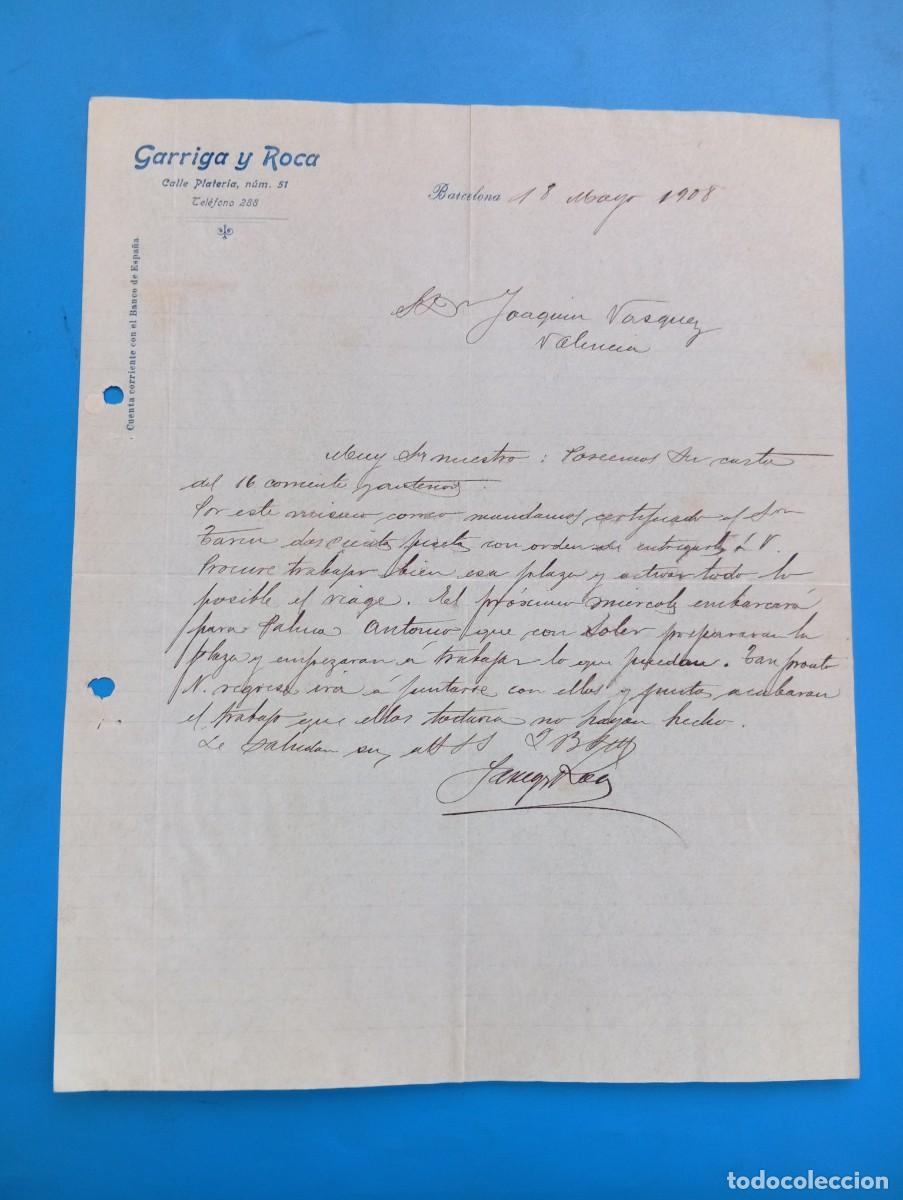 Garriga y Roca
Calle Platería, núm. 51
Teléfono 288
Cuenta corriente con el Banco de España.
Barcelona 18 Mayo 1908
Sr Dn Joaquin Vasquez
Valencia
Muy Sr nuestro: Poseemos su carta
del 16 corriente y anterior.
Por este mismo correo mandamos certificado al Sor
doscientas pesetas con orden de entregarlas á V.
Procure trabajar bien esa plaza y activar todo lo
posible el viage. El próximo miercoles embarcará
para Palma Antonio que con Soler prepararan la
plaza y empezaran á trabajar lo que puedan. Tan pronto
V. regrese irá á juntarse con ellos y juntos acabaran
el trabajo que ellos todavia no hayan hecho.
Le saludan sus SS Q B S M
Garriga y Roca
todocoleccion